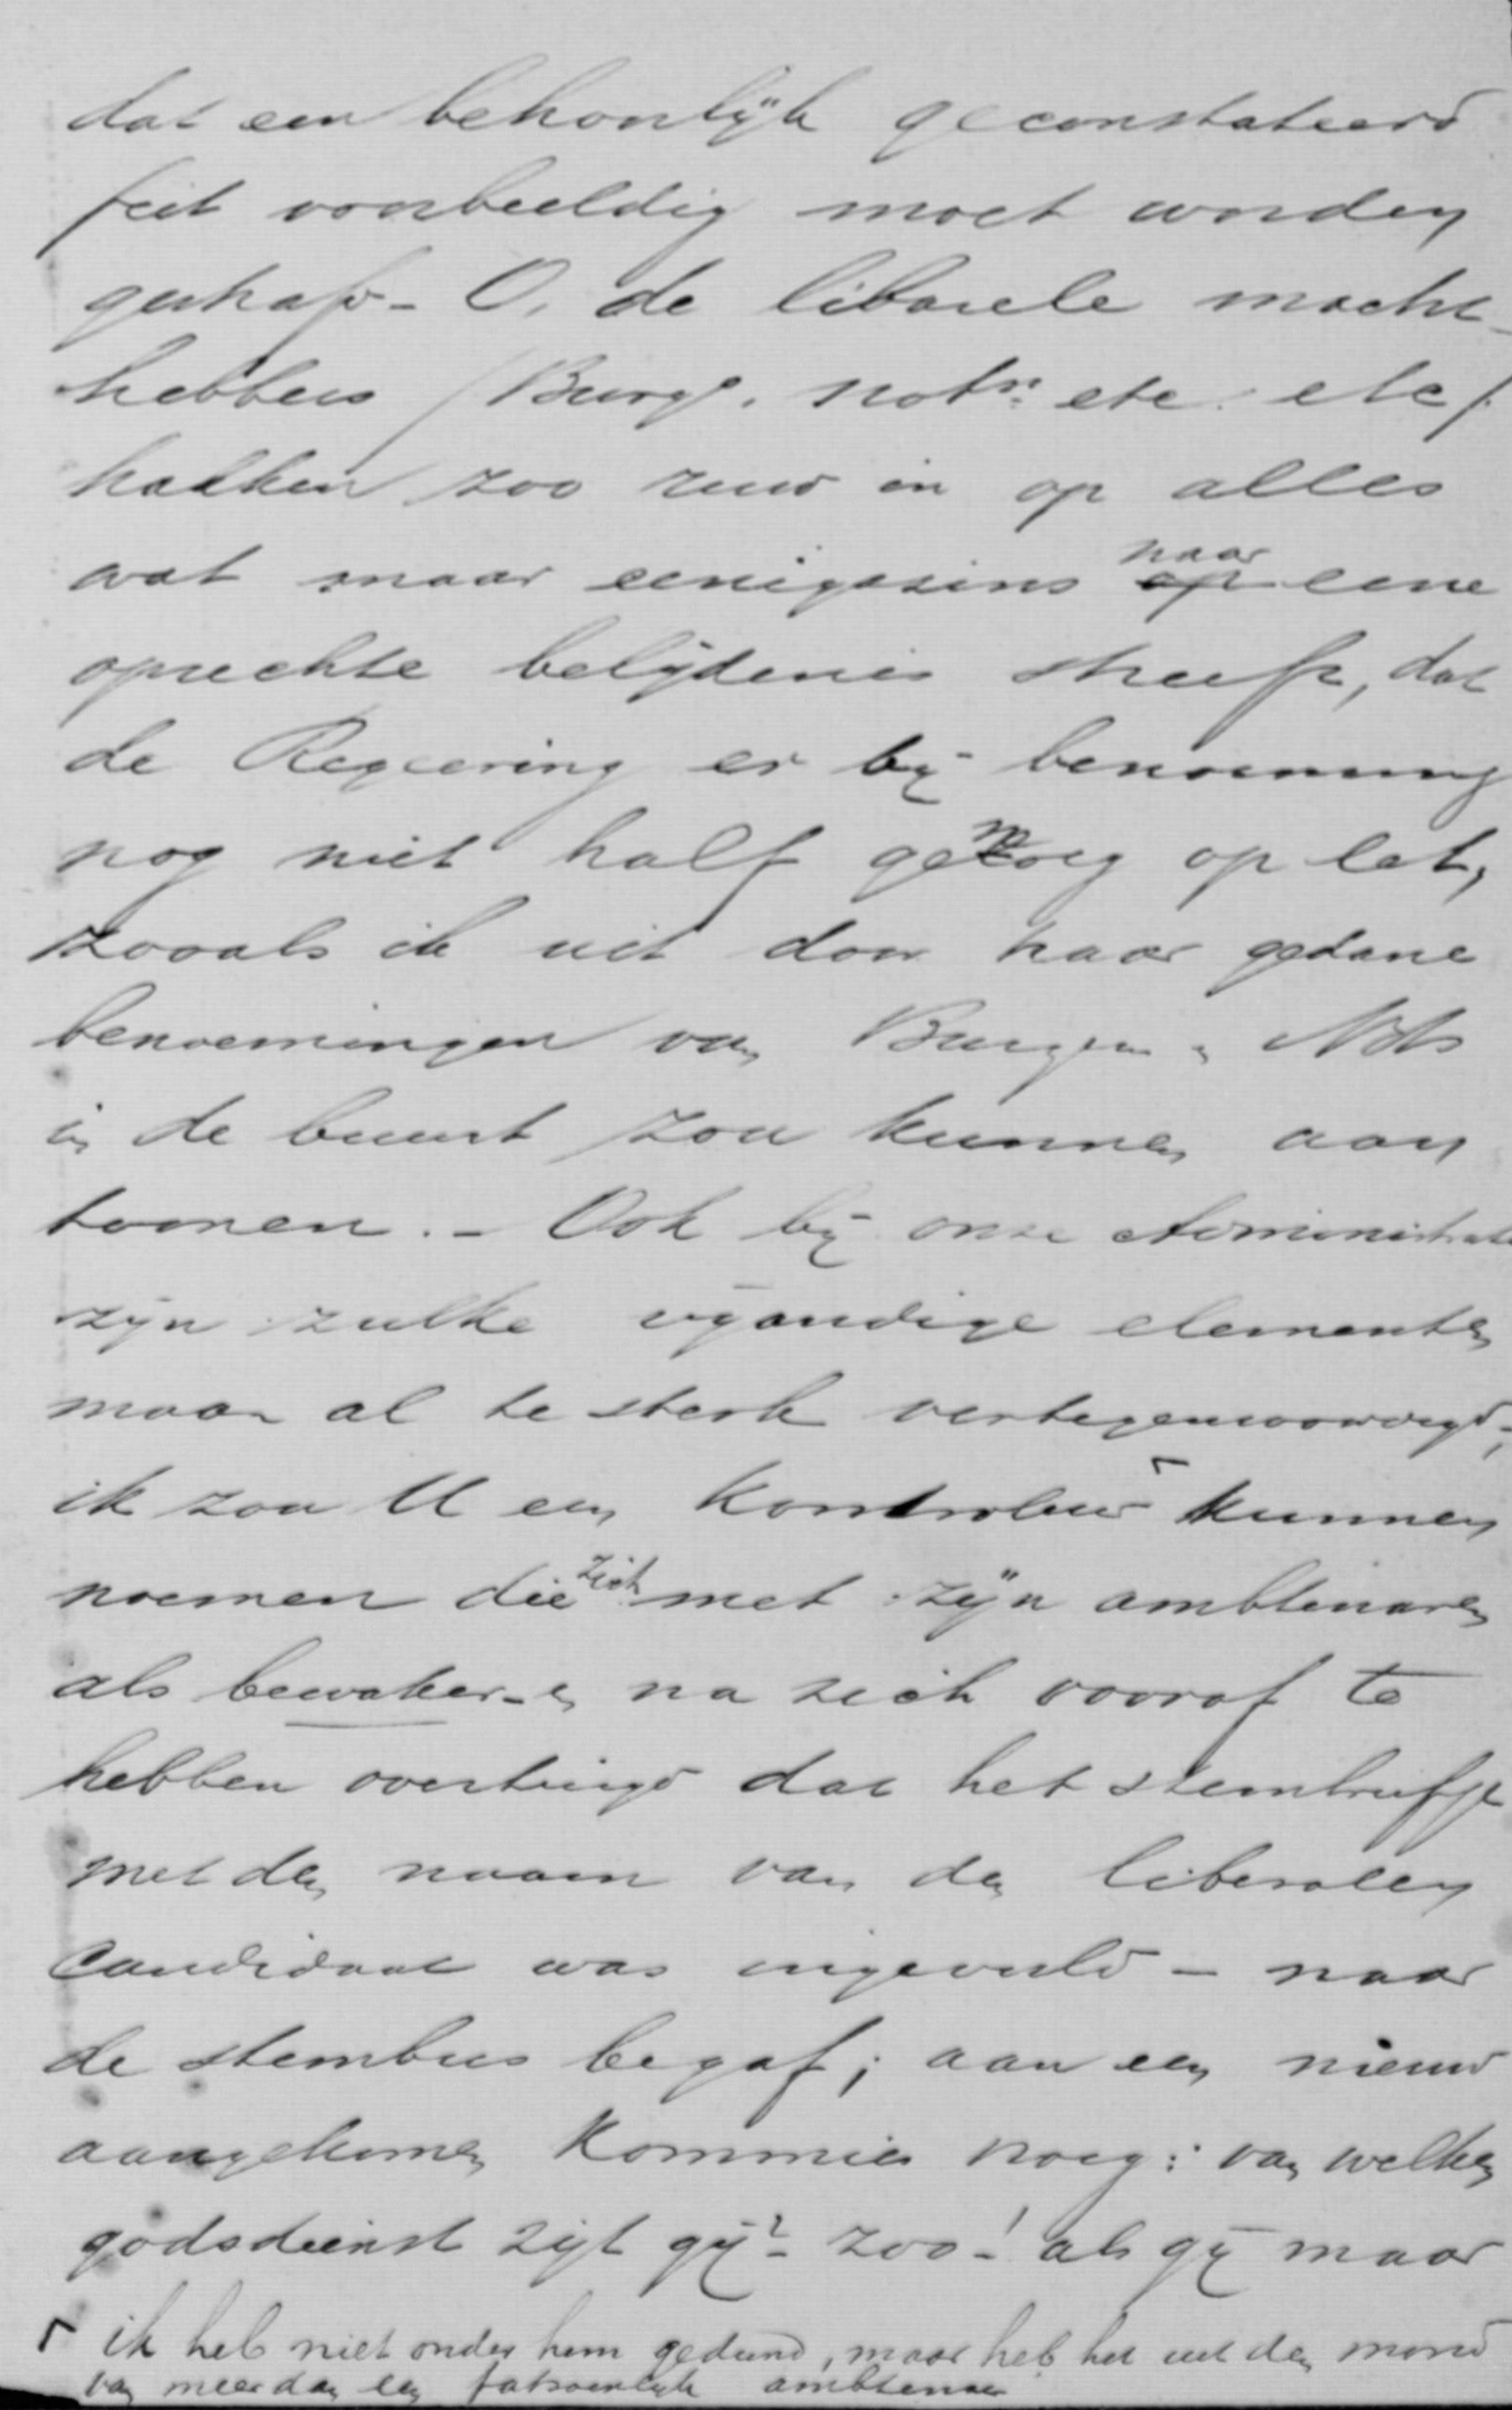 dat een behoorlijk geconstateerd
feit voorbeeldig moet worden
gestraft - O, de liberale macht-
hebbers (Burgs. notn: etc. etc).
hakken zoo zeer in op alles
wat maar eenigszins naar op eene
oprechte belijdenis streeft, dat
de Regeering er bij benoeming
nog niet half genoeg op let,
zooals ik uit door haar gedane
benoemingen van Burgem. Nots
in de buurt zou kunnen aan
toonen. - Ook bij onze Administratie
zijn zulke vijandige elementen
maar al te sterk vertegenwoordigd;
ik zou U een Kontroleur ⌈ kunnen
noemen die zich met zijn ambtenaren
als bewaker-s na zich vooraf te
hebben overtuigd dat het stembriefje
met den naam van den liberalen
Candidaat was ingevuld - naar
de stembus begaf; aan een nieuw
aangekomen Kommies vroeg: van welken
godsdienst zijt gij? - zoo! als gij maar
⌈ ik heb niet onder hem gediend, maar heb het uit den mond
van meer dan een fatsoenlijk ambtenaar